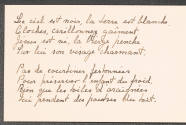 Le ciel est noir, la terre est blanche.
Cloches, carillonnez gaîment
Jésus est né, la Vierge penche
Sur lui son visage charmant.

Pas de courtines festonnées
Pour préserver l'enfant du froid.
Rien que les toiles d'araignées
Qui pendent des poutres du toit.